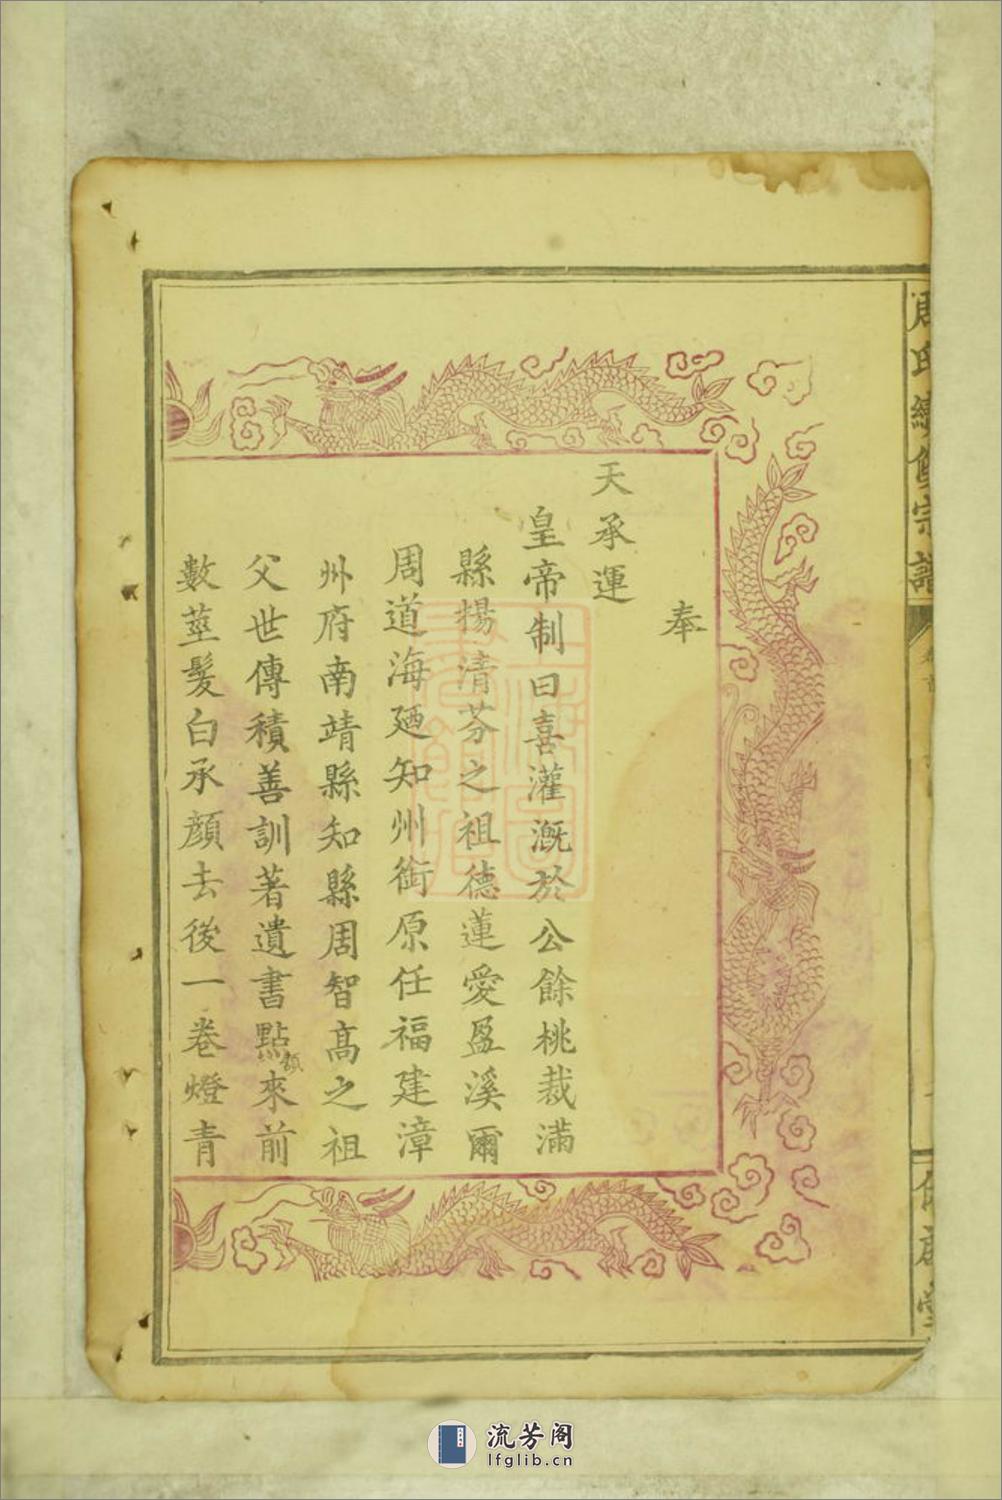 周氏續修宗譜
奉
天承運
皇帝制曰喜灌漑於公餘桃裁滿
縣揚清芬之祖德蓮愛盈溪爾
周道海廼知州銜原任福建漳
州府南靖縣知縣周智高之祖
父世傳積善訓著遺書點額來前
數莖髮白承顔去後一卷燈青
流芳阁
lfglib.cn